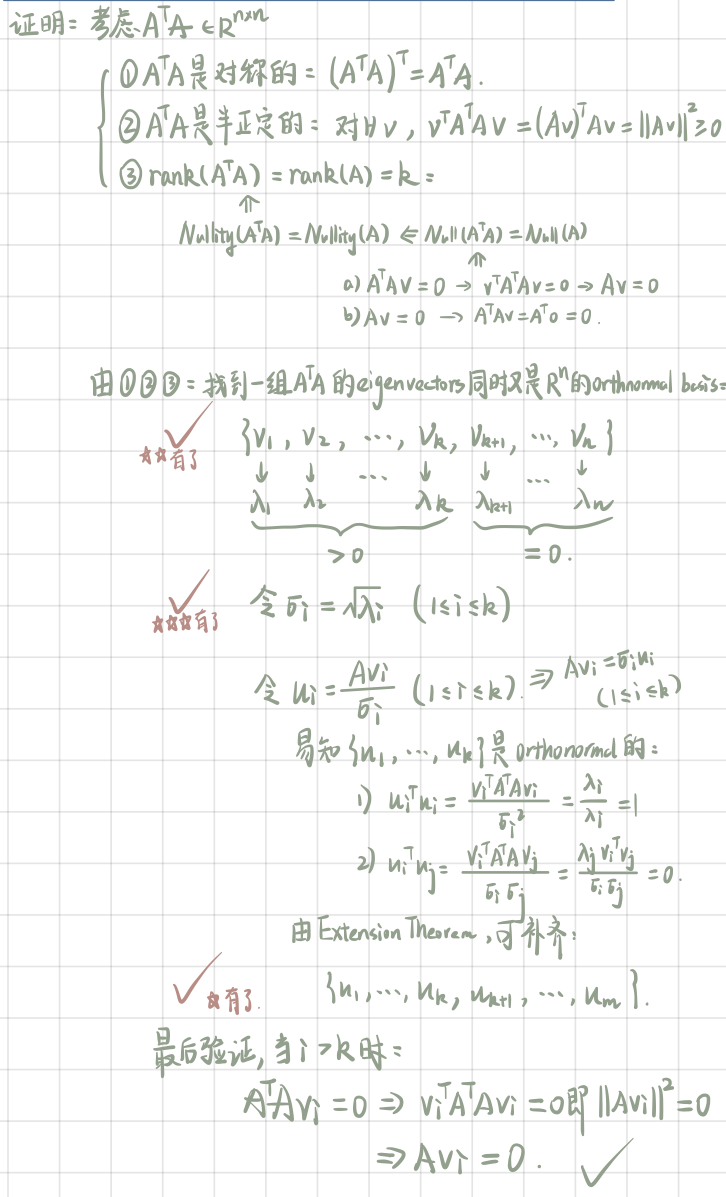 证明：考虑 AᵀA ∈ Rⁿˣⁿ
① AᵀA 是对称的：(AᵀA)ᵀ = AᵀA.
② AᵀA 是半正定的：对∀v, vᵀAᵀAv = (Av)ᵀAv = ||Av||² ≥ 0
③ rank(AᵀA) = rank(A) = k：
⇑
Nullity(AᵀA) = Nullity(A) ⇐ Null(AᵀA) = Null(A)
⇑
a) AᵀAv = 0 → vᵀAᵀAv = 0 → Av = 0
b) Av = 0 → AᵀAv = Aᵀ0 = 0.
由①②③：找到一组AᵀA 的eigenvectors同时又是Rⁿ的orthnormal basis：
✓ ☆☆有了 {v₁, v₂, ⋯, vₖ, vₖ₊₁, ⋯, vₙ}
↓ ↓ ⋯ ↓ ↓ ⋯ ↓
λ₁ λ₂ λₖ λₖ₊₁ λₙ
>0 =0.
✓ ☆☆☆有了 令 σᵢ = √λᵢ (1≤i≤k)
令 uᵢ = Avᵢ/σᵢ (1≤i≤k). ⇒ Avᵢ = σᵢuᵢ (1≤i≤k)
易知 {u₁, ⋯, uₖ} 是 orthonormal 的：
1) uᵢᵀuᵢ = vᵢᵀAᵀAvᵢ/σᵢ² = λᵢ/λᵢ = 1
2) uᵢᵀuⱼ = vᵢᵀAᵀAvⱼ/σᵢσⱼ = λⱼvᵢᵀvⱼ/σᵢσⱼ = 0.
由 Extension Theorem, 可补齐：
✓ ☆有了. {u₁, ⋯, uₖ, uₖ₊₁, ⋯, uₘ}.
最后验证, 当 i > k 时：
AᵀAvᵢ = 0 ⇒ vᵢᵀAᵀAvᵢ = 0即 ||Avᵢ||² = 0
⇒ Avᵢ = 0. ✓